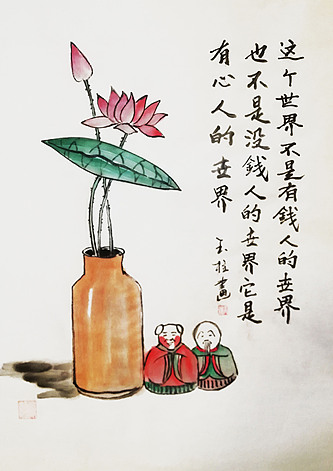 这个世界不是有錢人的世界
也不是没錢人的世界它是
有心人的世界